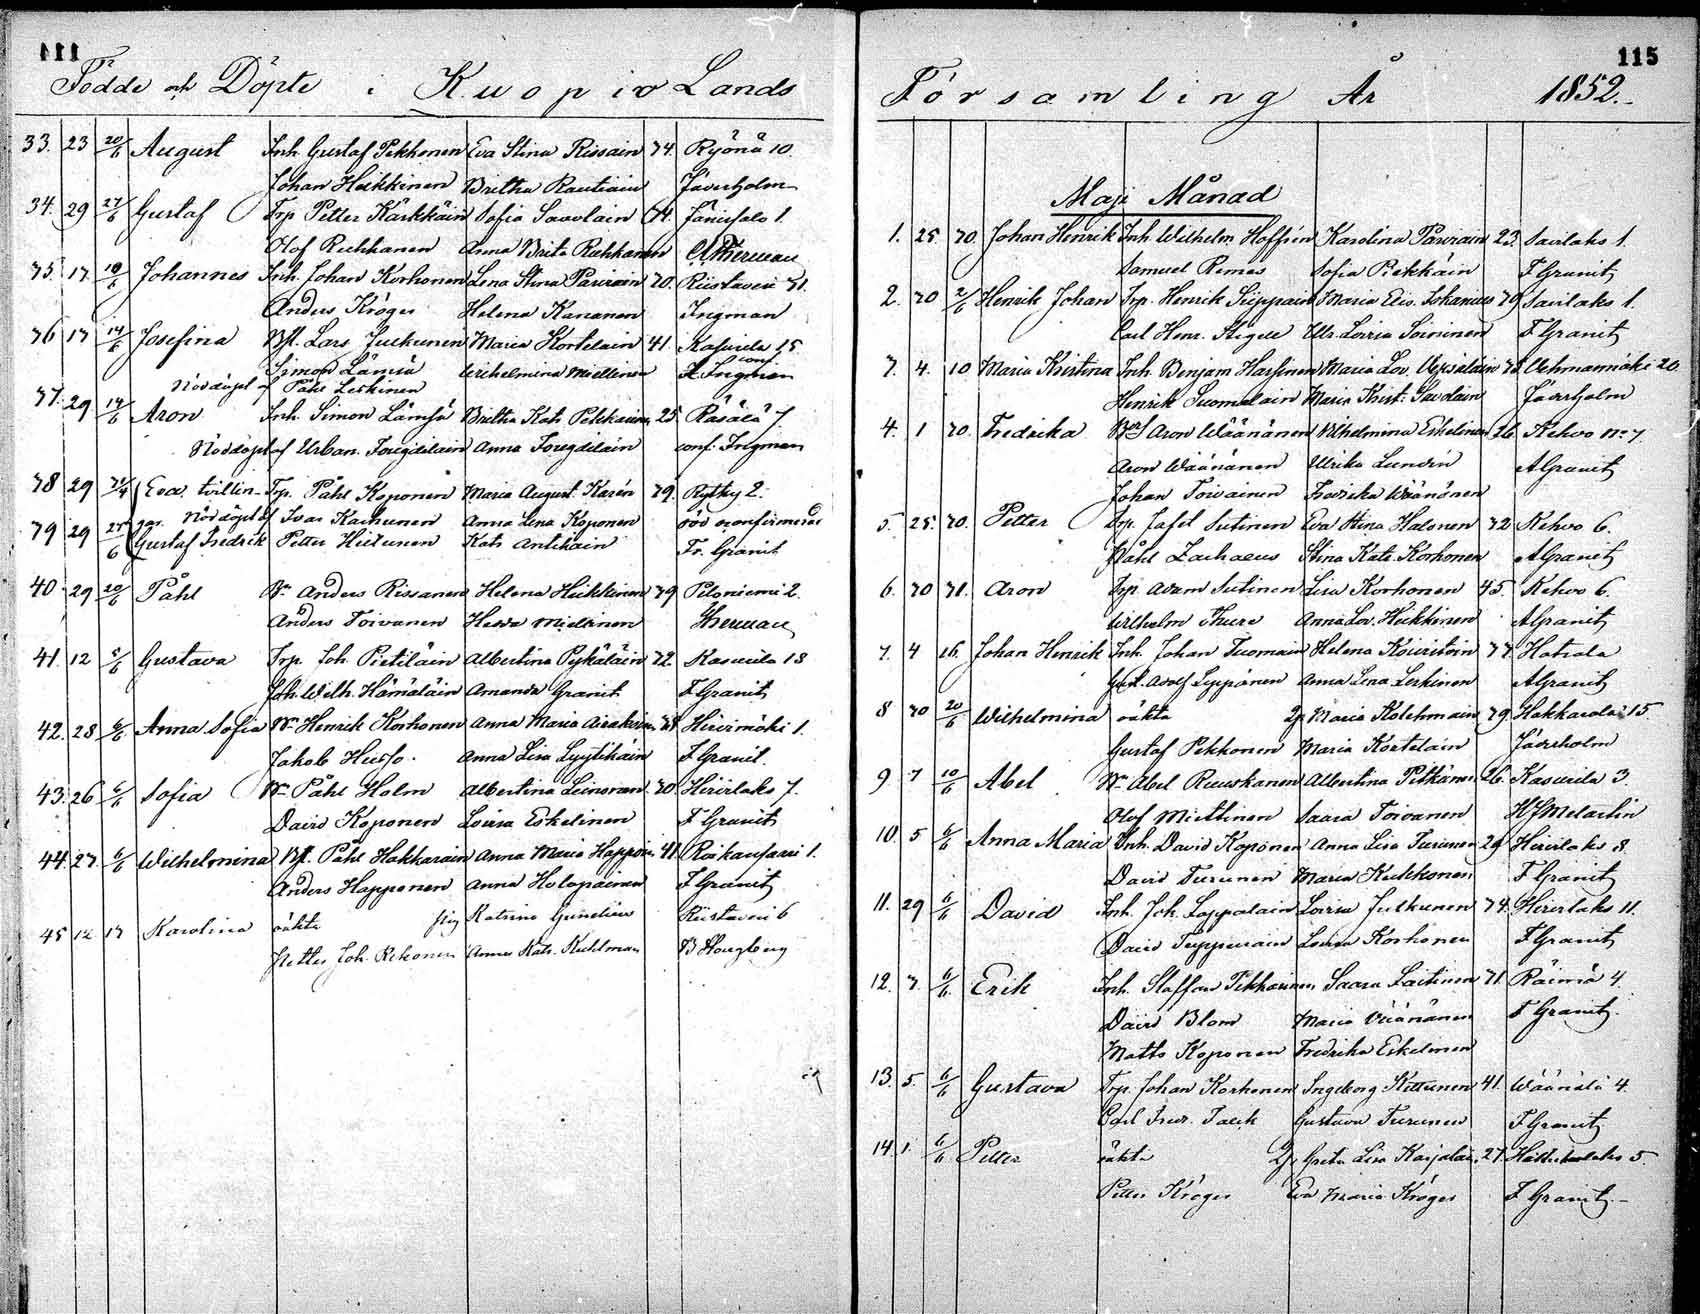 114
Födde och Döpte i Kuopio Lands
33. 23 20/6 August Inh. Gustaf Pekkonen Eva Stina Rissain 34. Ryönä 10.
Johan Heikkinen Britha Rautiain Jäversholm
34. 29 27/6 Gustaf Trp Petter Kärkkäin Sofia Savolain 34. Jänissalo 1.
Olof Ruhkanen Anna Brita Ruhkanen
35. 17 19/6 Johannes Inh. Johan Korhonen Lena Stina Parvian 30. Riistavesi 31.
Anders Kröger Helena Kananen Ingman
36 17 14/6 Josefina Bfl. Lars Julkunen Maria Kortelain 41. Kasurila 15
Simon Lämsä Wilhelmina Miettinen conf. Ingman
Nöddöpt af Påhl Leskinen
37. 29 14/6 Aron Inh. Simon Lämsä Britha Kat. Pekkarin 25. Räsälä 7.
Nöddöpt af Urban Anna conf. Ingman
38 29 Eva tvillin- Trp. Påhl Koponen Maria August. Karén 39. Rytky 2.
gar. Nöddöpt af Ivar Kaihunen Anna Lena Koponen
39 29 Gustaf Fredrik Petter Hiltunen Kat. Antikain Fr. Granit
40. 29 20/6 Påhl Bn Anders Rissanen Helena Heikkinen 39 Pitoniemi 2.
Anders Toivanen Hedda Miettinen
41. 12 5/6 Gustava Trp. Joh. Pietiläin Albertina Pykäläin 32. Kasurila 18
Joh. Wilh. Hämäläin Amanda Granit F Granit
42. 28 6/6 Anna Sofia Bn Henrik Korhonen Anna Maria 28 Hirvimäki 1.
Jakob Husso. Anna Lisa Lyytikain F Granit.
43. 26 6/6 Sofia Bn Påhl Holm Albertina Leinonen 30. Hirvilaks 7.
David Koponen Lovisa Eskelinen F Granit
44. 27. 6/6 Wilhelmina Bfl. Påhl Hakkarain Anna Maria Happoin 41. Roikansaari 1.
Anders Happonen Anna Holopainen F Granit
45 12 17 Karolina oäkta Pig Katrina Riistavesi 6
Petter Joh. Rekonen Anna Kat. Kuhlman B Hougberg
115
Församling År 1852.
Maji Månad
1. 25. 30. Johan Henrik Inh. Wilhelm Hoffrén Karolina Parviain 23. Savilaks 1.
Samuel Remes Sofia Pirkkäin F Granit
2. 30 2/6 Henrik Johan Trp. Henrik Siippain Maria Elis. Johanius 39 Savilaks 1.
Carl Henr. Stigell Ulr. Lovisa Soininen F Granit
3. 4. 10 Maria Kristina Inh. Benjam Harfinen Maria Lov. Vepsäläin 35. Uchmanmäki 20.
Henrik Suomalain Maria Krist. Savolain Jäversholm
4. 1 30. Fredrika Aron Wäänänen Wilhelmina Eskelinen 26. Kehvo No 7
Aron Wäänänen Ulrika Lundin AGranit
Johan Toivainen Fredrika Wäänänen
5. 25. 30. Petter Trp. Jafet Sutinen Eva Stina Halonen 32 Kehvo 6.
Påhl Zachaeus Stina Kat. Korhonen AGranit
6. 30 31. Aron Trp. Adam Sutinen Lisa Korhonen 45. Kehvo 6.
Wilhelm Thure Anna Lov. Heikkinen AGranit
7. 4 16. Johan Henrik Inh. Johan Tuomain Helena Koivistoin 37 Hatsala
Gust. Adolf Leppänen Anna Lena Leskinen AGranit
8 30 20/6 Wilhelmina oäkta Maria Kolehmain 39. Hakkarala 15
Gustaf Pekkonen Maria Kortelain Jäversholm
9 7 10/6 Abel Bn Abel Ruuskanen Albertina Pitkänen 26. Kasurila 3
Olof Miettinen Saara Toivanen HfMelartin
10. 5 6/6 Anna Maria Inh. David Koponen Anna Lisa Turunen 29 Hirvilaks 8.
David Turunen Maria Kukkonen F Granit
11. 29 6/6 David Inh. Joh. Lappalain Lovisa Julkunen 34. Hirvilaks 11.
David Tuppurain Lovisa Korhonen F Granit
12. 3. 6/6 Erik Inh. Staffan Pekkarinen Saara Laitinen 31. Räimä 4.
David Blom Maria Väänänen F Granit.
Matts Koponen Fredrika Eskelinen
13. 5. 6/6 Gustava Trp. Johan Korhonen Ingeborg Kettunen 41. Wäänälä 4.
Carl Fredr. Gustava Turunen F Granit
14. 1. 6/6 Petter oäkta Greta Lisa Karjalai. 27. 5.
Petter Kröger Eva Maria Kröger F Granit.